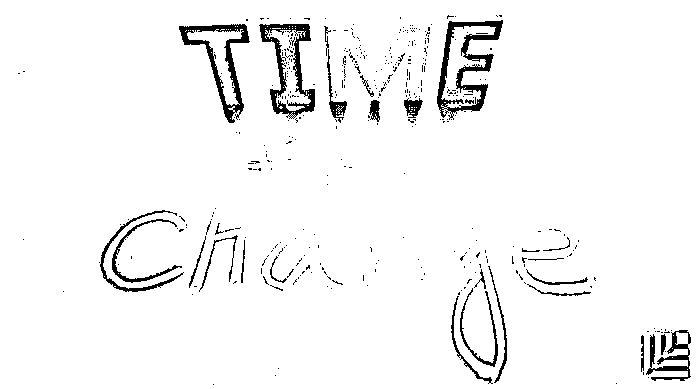 TIME
Change